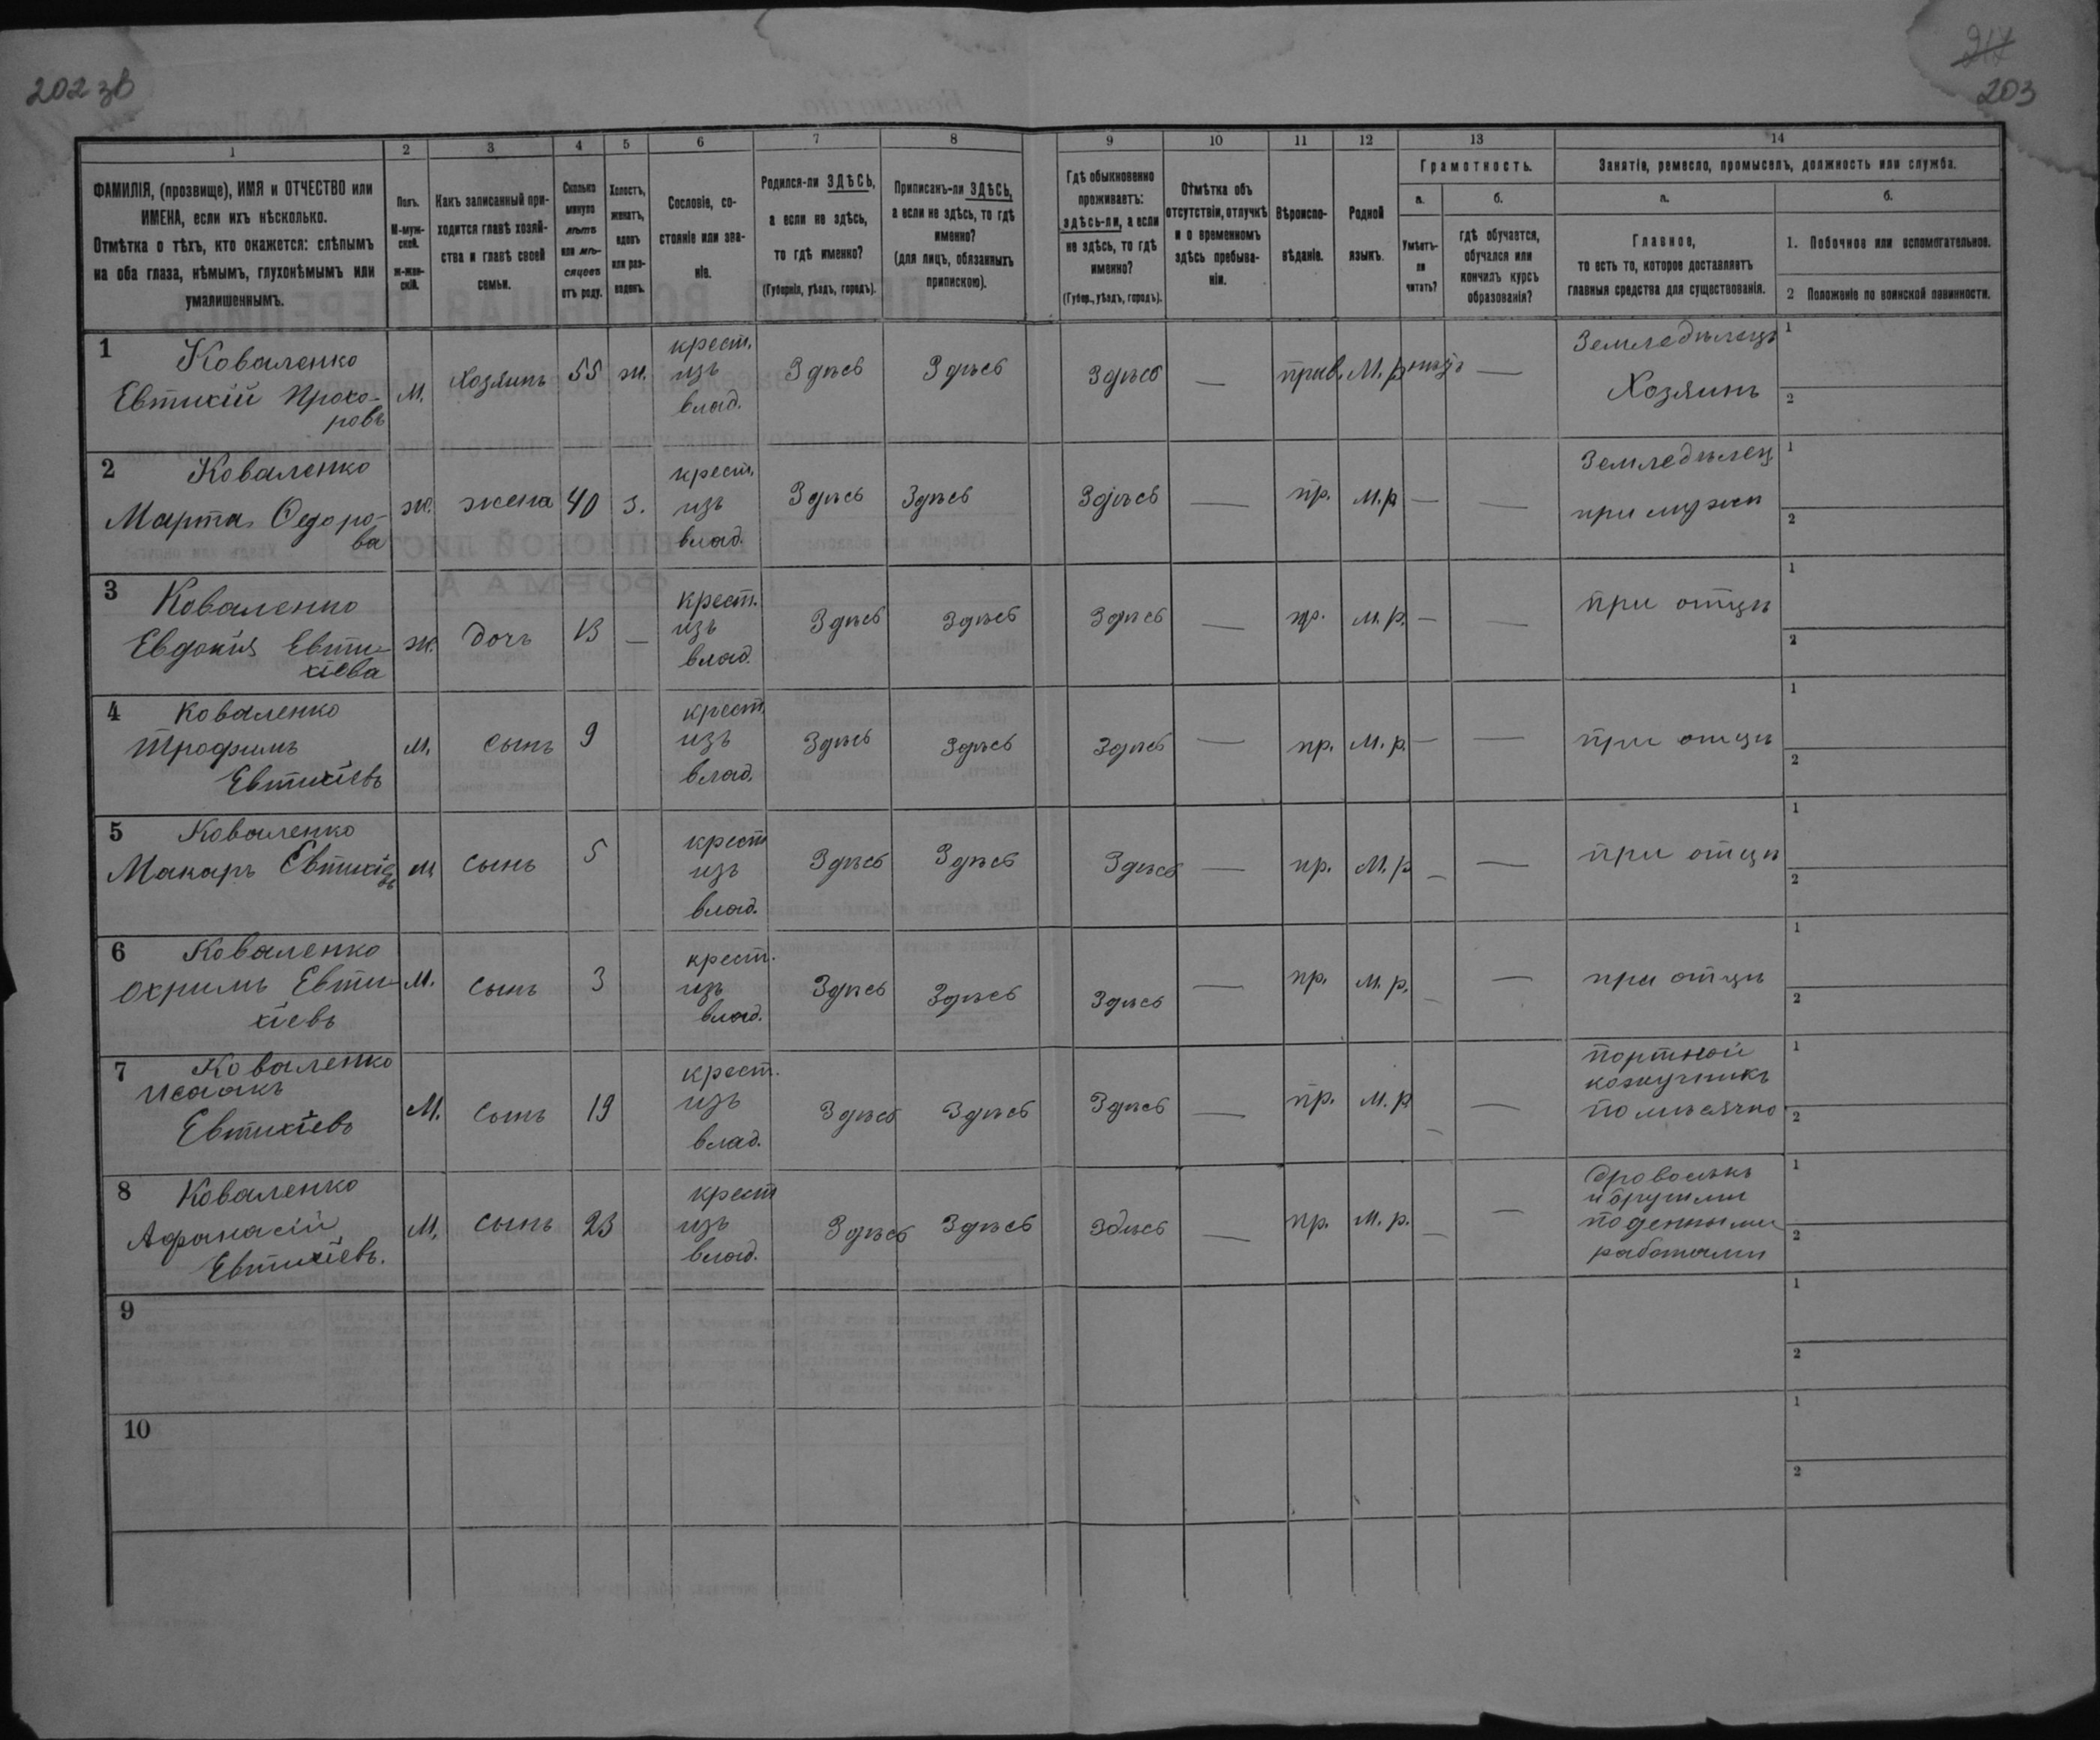 202 зв
217
203
1 2 3 4 5 6 7 8 9 10 11 12 13 14
ФАМИЛІЯ, (прозвище), ИМЯ и ОТЧЕСТВО или
ИМЕНА, если ихъ нѣсколько.
Отмѣтка о тѣхъ, кто окажется: слѣпымъ
на оба глаза, нѣмымъ, глухонѣмымъ или
умалишеннымъ.
Полъ.
М-муж-
ской.
Ж-жен-
скій.
Какъ записанный при-
ходится главѣ хозяй-
ства и главѣ своей
семьи.
Сколько
минуло
лѣтъ
или мѣ-
сяцевъ
отъ роду.
Холостъ,
женатъ,
вдовъ
или раз-
веденъ.
Сословіе, со-
стояніе или зва-
ніе.
Родился-ли ЗДѢСЬ,
а если не здѣсь,
то гдѣ именно?
(Губернія, уѣздъ, городъ).
Приписанъ-ли ЗДѢСЬ,
а если не здѣсь, то гдѣ
именно?
(для лицъ, обязанныхъ
припискою).
Гдѣ обыкновенно
проживаетъ:
здѣсь-ли, а если
не здѣсь, то гдѣ
именно?
(Губер., уѣздъ, городъ).
Отмѣтка объ
отсутствіи, отлучкѣ
и о временномъ
здѣсь пребыва-
ніи.
Вѣроиспо-
вѣданіе.
Родной
языкъ.
Грамотность.
а.
Умѣетъ-
ли
читать?
б.
гдѣ обучается,
обучался или
кончилъ курсъ
образованія?
Занятія, ремесло, промыселъ, должность или служба.
а.
Главное,
то есть то, которое доставляетъ
главныя средства для существованія.
б.
1. Побочное или вспомогательное.
2 Положеніе по воинской повинности.
1 Коваленко
Евтихій Прохо-
ровъ
М.
Хозяинъ
55
ж.
крест.
изъ
влад.
Здѣсь
Здѣсь
Здѣсь
—
прав.
М. р.
—
Земледѣлецъ
Хозяинъ
1
2
2 Коваленко
Марта Ѳедоро-
ва
ж.
жена
40
з.
крест.
изъ
влад.
Здѣсь
Здѣсь
Здѣсь
—
пр.
М.р
—
—
Земледѣлец.
при мужи
1
2
3 Коваленко
Евдокія Евти-
хіева
ж.
дочь
13
—
крест.
изъ
влад.
Здѣсь
Здѣсь
Здѣсь
—
пр.
М. р.
—
—
при отцѣ
1
2
4 Коваленко
Трофимъ
Евтихіевъ
М.
сынъ
9
крест.
изъ
влад.
Здѣсь
Здѣсь
Здѣсь
—
пр.
М. р.
—
—
при отцѣ
1
2
5 Коваленко
Макаръ Евтихіевъ
М
сынъ
5
крест
изъ
влад.
Здѣсь
Здѣсь
Здѣсь
—
пр.
М. р
—
—
при отцѣ
1
2
6 Коваленко
Охримъ Евти-
хіевъ
М.
сынъ
3
крест.
изъ
влад.
Здѣсь
Здѣсь
Здѣсь
—
пр.
М. р.
—
—
при отцѣ
1
2
7 Коваленко
Исаакъ
Евтихіевъ
М.
сынъ
19
крест.
изъ
влад.
Здѣсь
Здѣсь
Здѣсь
—
пр.
М. р
—
—
портной
кожушникъ
помѣсячно
1
2
8 Коваленко
Афанасій
Евтихіевъ.
М.
сынъ
23
крест
изъ
влад.
Здѣсь
Здѣсь
Здѣсь
—
пр.
М. р.
—
—
Дровосѣкъ
и другими
поденными
работами
1
2
9
1
2
10
1
2